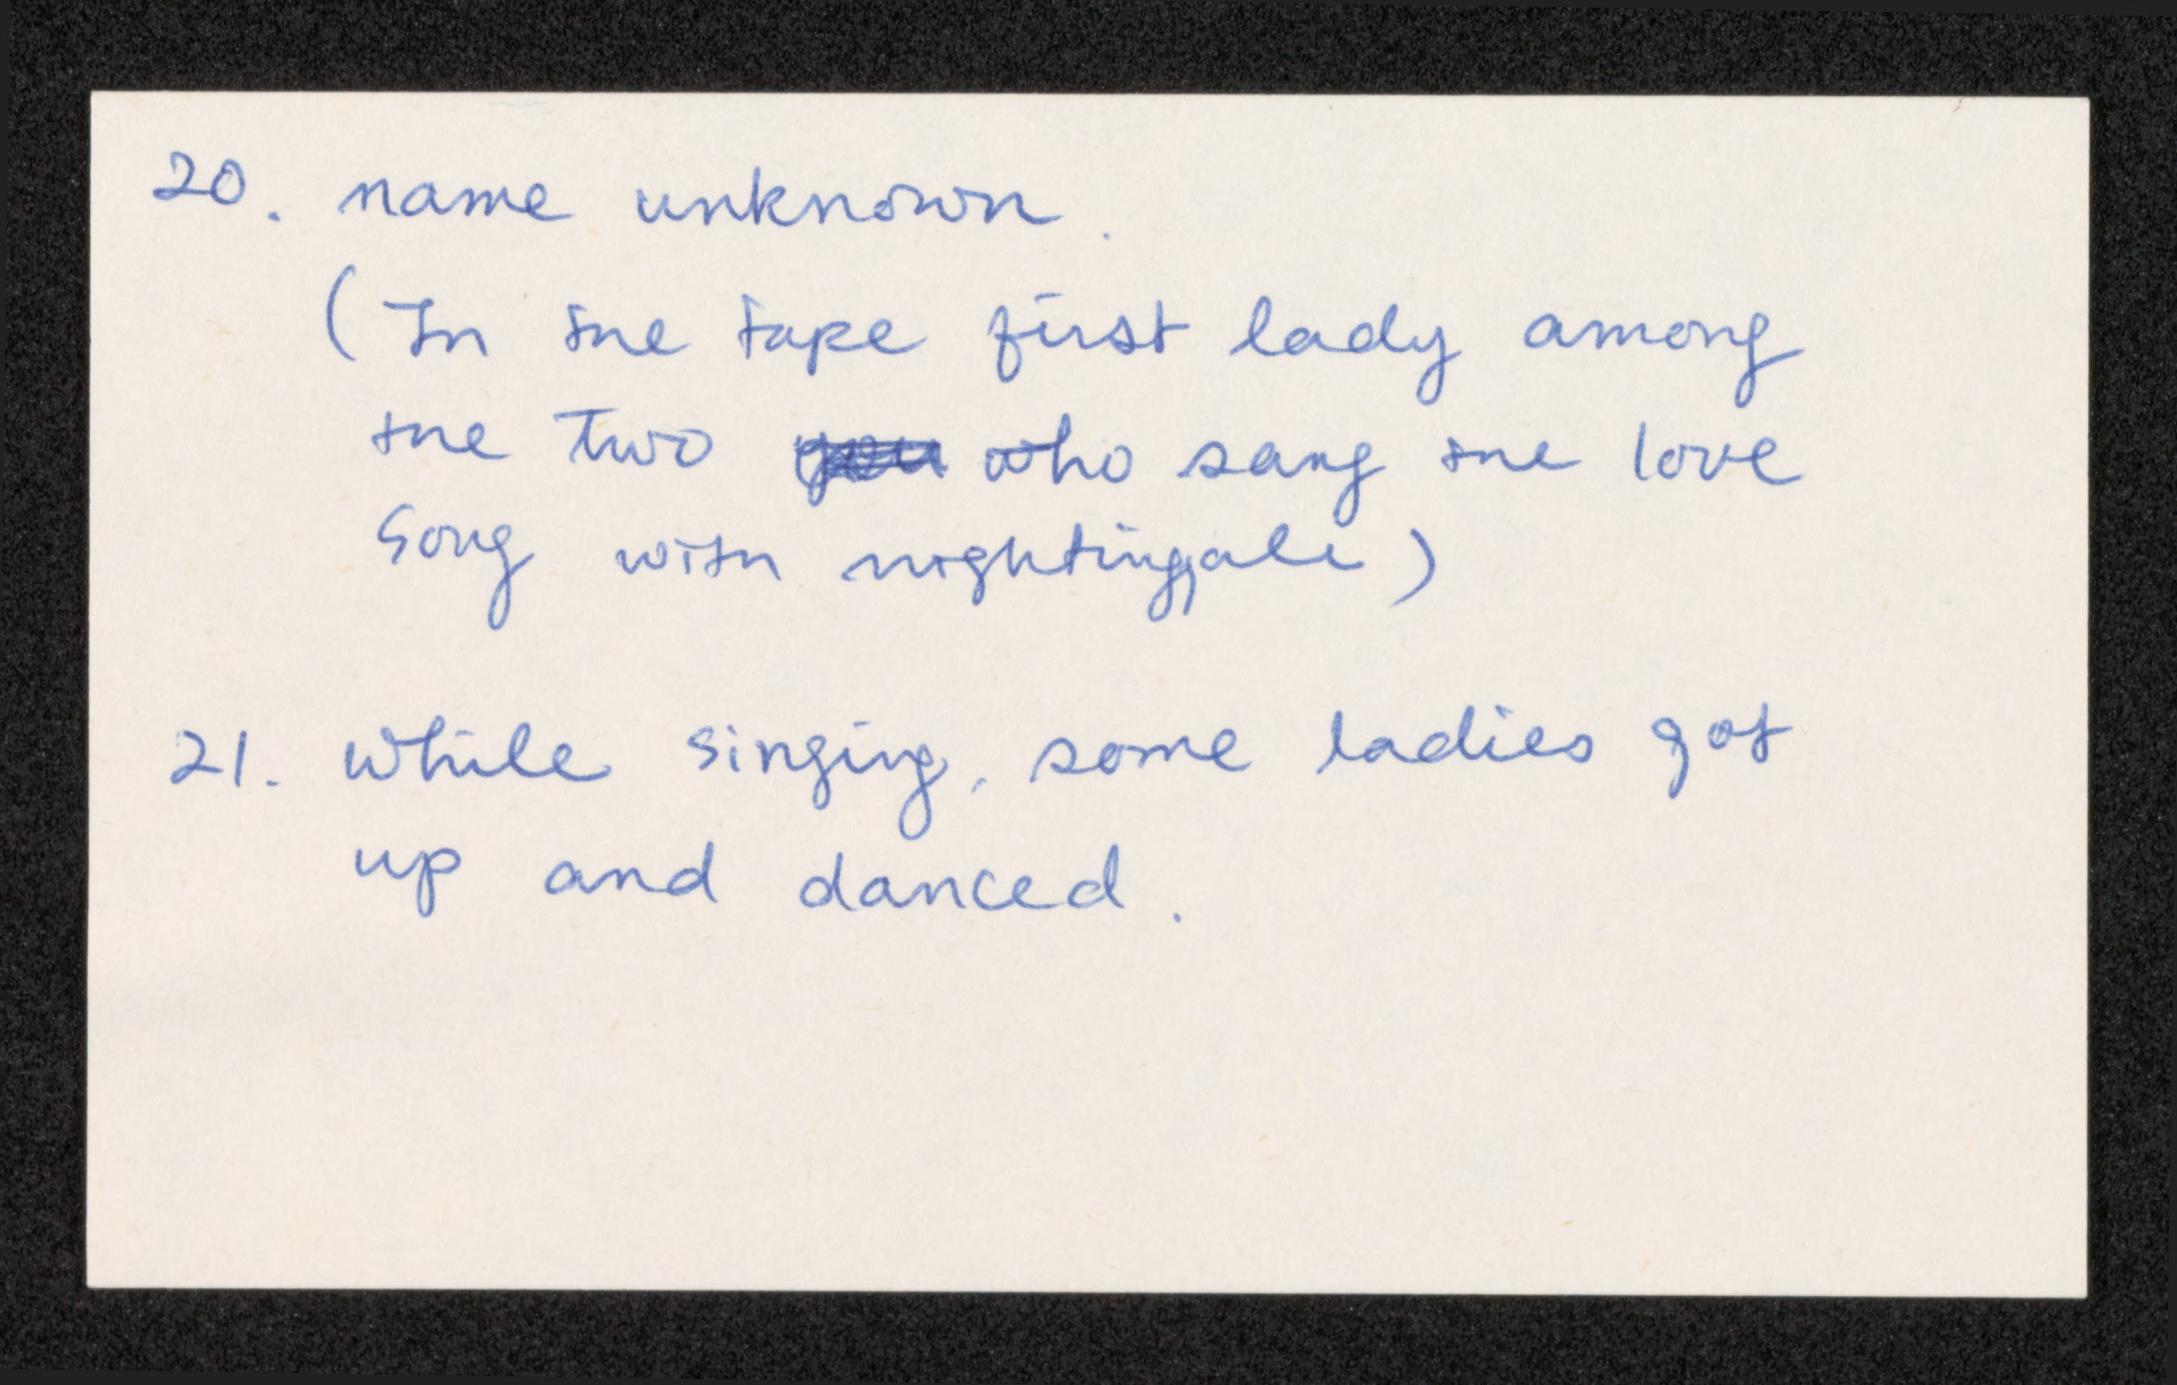 20. name unknown.
(In the tape first lady among
the two who sang the love
song with nightingale)
21. while singing, some ladies got
up and danced.